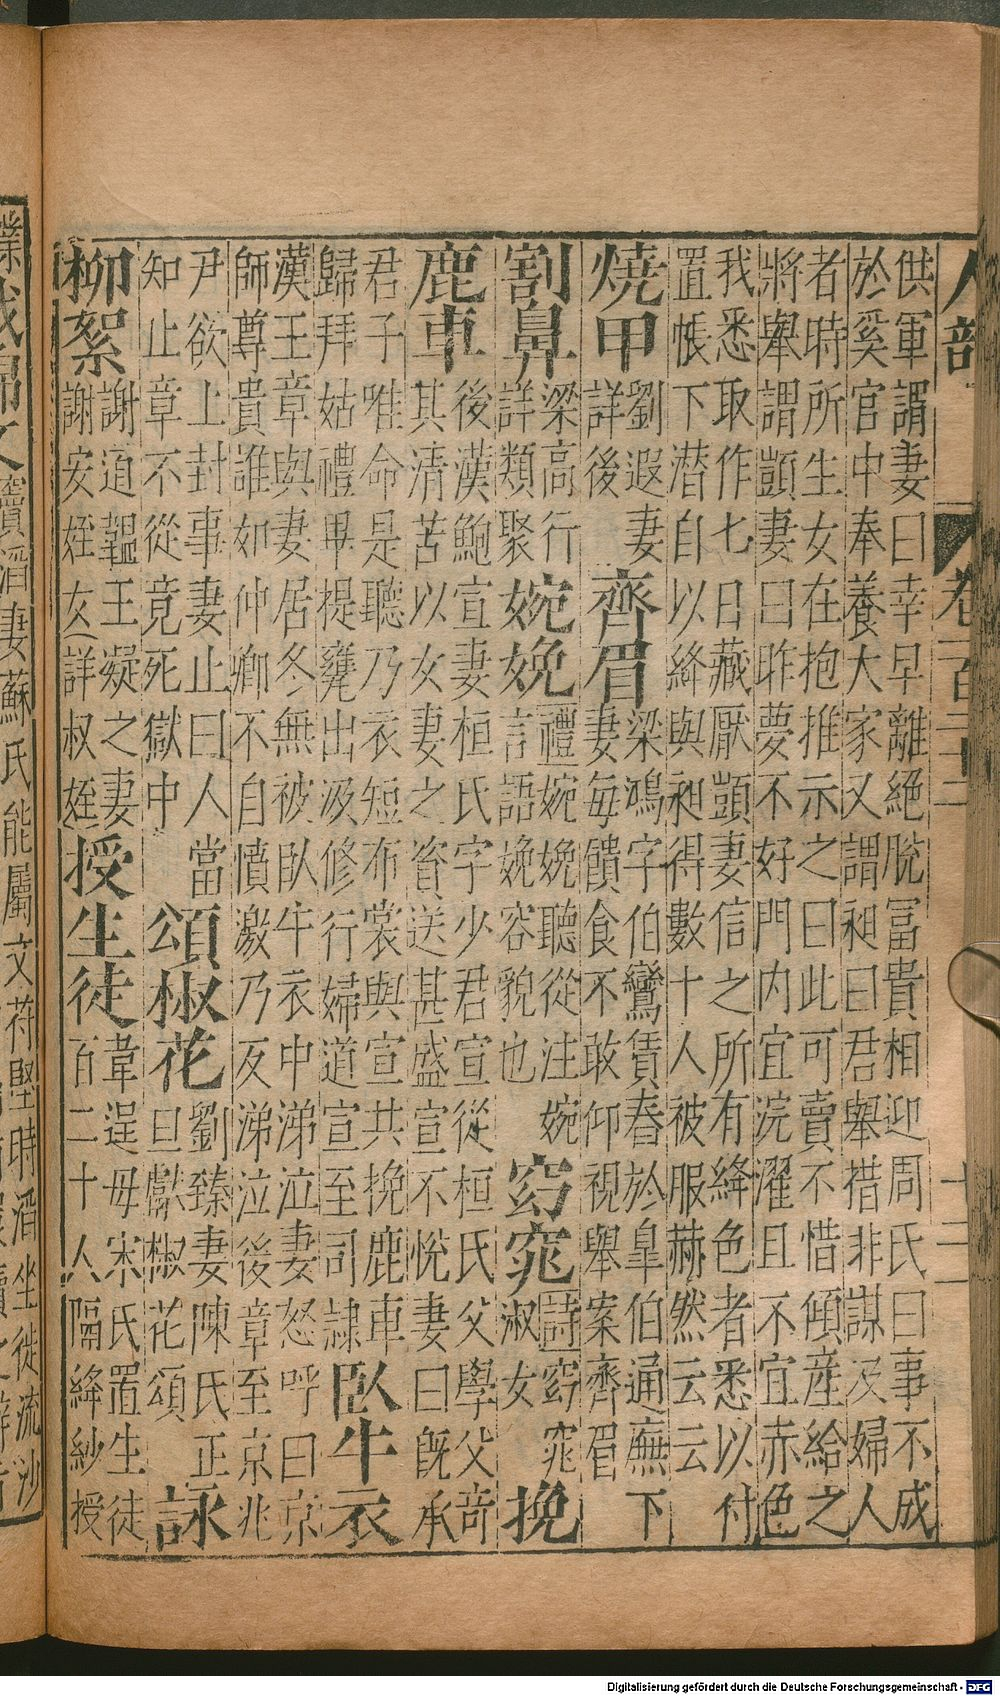 人部
十二
供軍謂妻曰幸早離絕脫冨貴相迎周氏曰事不成
於奚官中奉養大家又謂昶曰君舉措非謀及婦人
者時所生女在抱推示之曰此可賣不惜傾産給之
將舉謂顗妻曰昨夢不好門内宜浣濯且不宜赤色
我悉取作七日藏厭顗妻信之所有絳色者悉以付
置帳下潜自以絳與昶得數十人被服赫然云云
燒甲
劉遐妻
詳後
齊眉
梁鴻字伯鸞賃舂於臯伯通廡下
妻每饋食不敢仰視舉案齊眉
割鼻
梁高行
詳類聚
婉娩
禮婉娩聽從注婉
言語娩容貌也
窈窕
詩窈窕
淑女
挽
鹿車
後漢鮑宣妻桓氏字少君宣從桓氏父學父奇
其清苦以女妻之資送甚盛宣不悅妻曰旣承
君子唯命是聽乃衣短布裳與宣共挽鹿車
歸拜姑禮畢提甕出汲修行婦道宣至司隸
臥牛衣
漢王章與妻居冬無被臥牛衣中涕泣妻怒呼曰京
師尊貴誰如仲卿不自憤激乃反涕泣後章至京兆
尹欲上封事妻止曰人當
知止章不從竟死獄中
頌椒花
劉臻妻陳氏正
旦獻椒花頌
詠
柳絮
謝道韞王凝之妻
謝安姪女詳叔姪
授生徒
韋逞母宋氏置生徒
百二十人隔絳紗授
業
織錦文
竇滔妻蘇氏能屬文苻堅時滔坐徙流沙
Digitalisierung gefördert durch die Deutsche Forschungsgemeinschaft - DFG